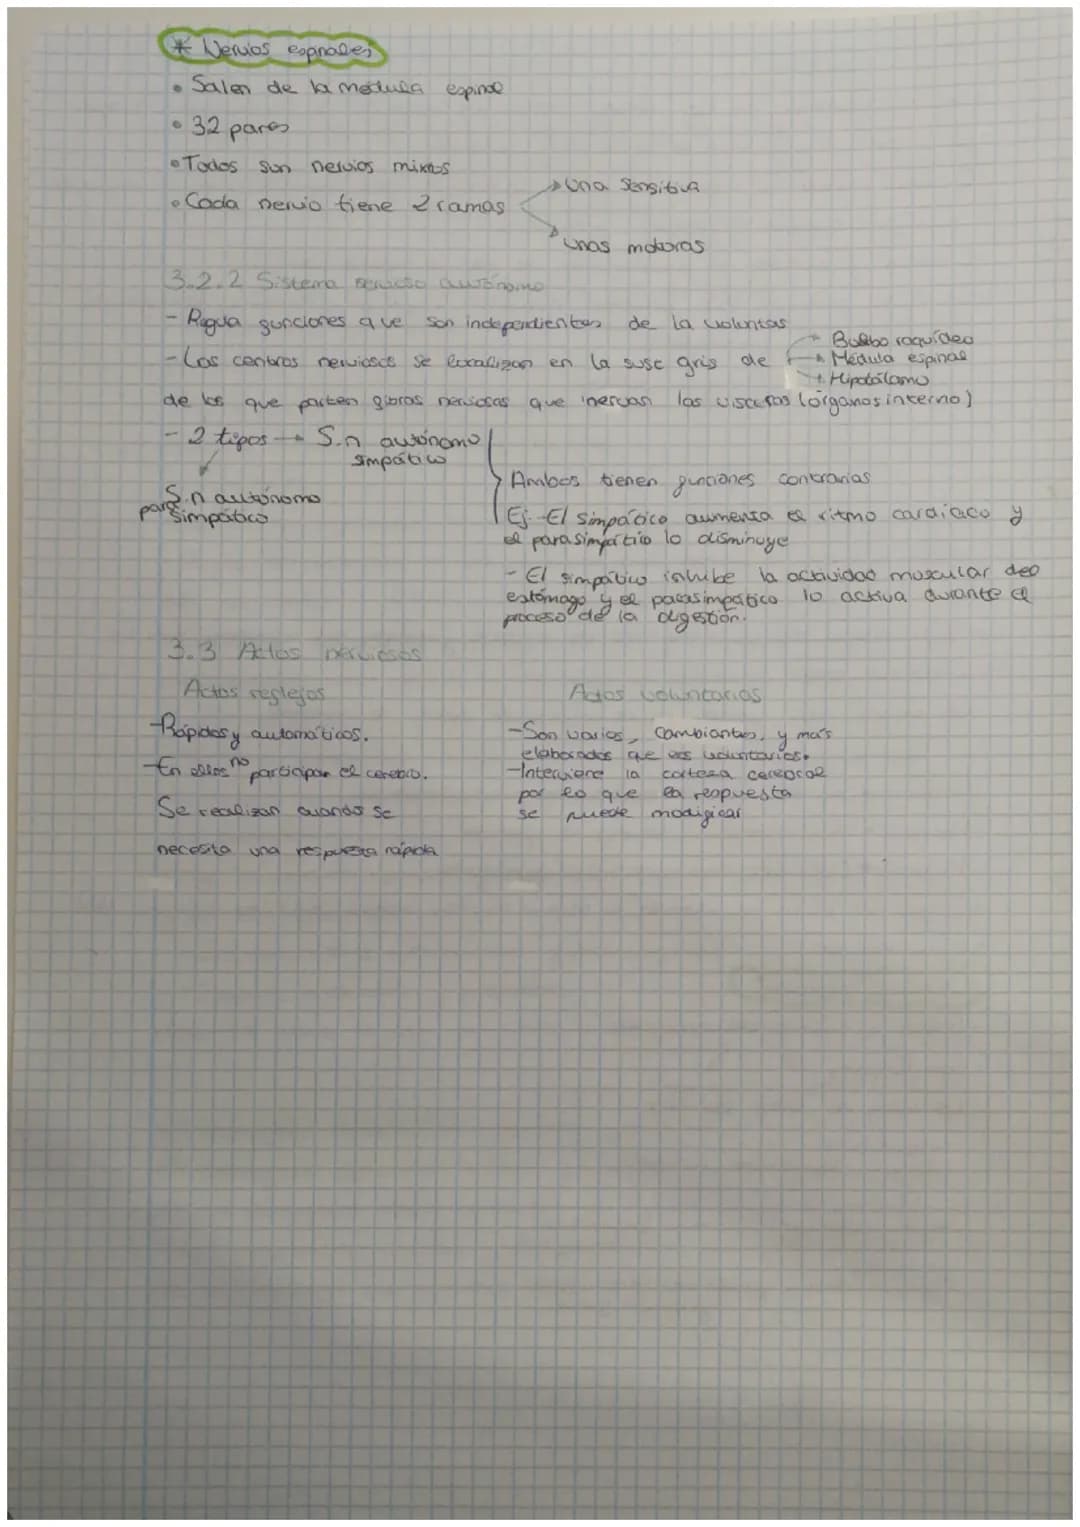 * Nervios espinales
• Salen de la médula espinal
• 32 pares
• Todos son nervios mixtos
• Cada nervio tiene 2 ramas
Una Sensitiva
Unas motoras
3.2.2 Sistema nervioso autónomo
- Regula funciones que son independientes de la voluntas
- Los centros nerviosos se localizan en la susc gris de
Bulbo raquídeo
Médula espinal
Hipotálamo
de los que parten fibras nerviosas que inervan las vísceras (órganos interno)
- 2 tipos → S.n autónomo
simpático
S.n autónomo
parasimpático
Ambos tienen funciones contrarias
Ej: -El simpático aumenta el ritmo cardíaco y
el parasimpático lo disminuye
- El simpático inhibe la actividad muscular del
estómago y el parasimpático lo activa durante el
proceso de la digestión.
3.3 Actos nerviosos
Actos reflejos
-Rápidos y automáticos.
-En ellos no participan el cerebro.
Se realizan cuando se
necesita una respuesta rápida
Actos voluntarios
-Son varios, cambiantes, y más
elaborados que los voluntarios.
-Interviene la corteza cerebral
por lo que la respuesta
se puede modificar